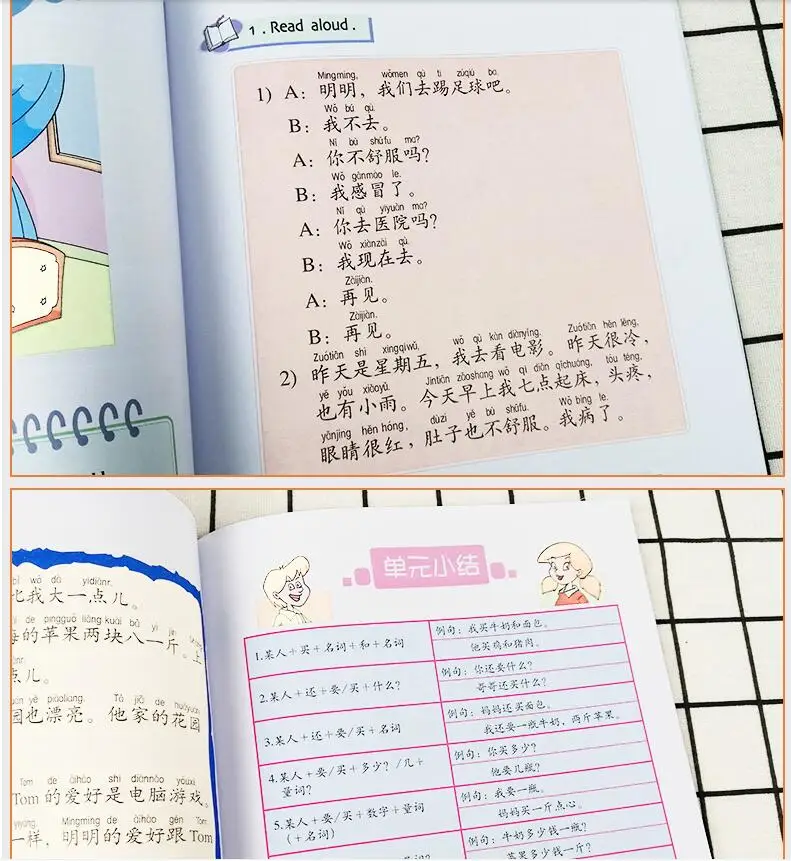 1 . Read aloud .
Míngming, wǒmen qù tī zúqiú ba.
1) A: 明明，我们去踢足球吧。
Wǒ bú qù.
B: 我不去。
Nǐ bù shūfu ma?
A: 你不舒服吗？
Wǒ gǎnmào le.
B: 我感冒了。
Nǐ qù yīyuàn ma?
A: 你去医院吗？
Wǒ xiànzài qù.
B: 我现在去。
Zàijiàn.
A: 再见。
Zàijiàn.
B: 再见。
Zuótiān shì xīngqīwǔ, wǒ qù kàn diànyǐng. Zuótiān hěn lěng,
2) 昨天是星期五，我去看电影。昨天很冷，
yě yǒu xiǎoyǔ. Jīntiān zǎoshang wǒ qī diǎn qǐchuáng, tóu téng,
也有小雨。今天早上我七点起床，头疼，
yǎnjing hěn hóng, dùzi yě bù shūfu. Wǒ bìng le.
眼睛很红，肚子也不舒服。我病了。
wǒ dà yìdiǎnr.
我大一点儿。
de píngguǒ liǎng kuài bā yì jīn
的苹果两块八一斤。上
点儿。
yě piàoliang. Tā jiā de huāyuán
园也漂亮。他家的花园
Tom de àihào shì diànnǎo yóuxì.
Tom 的爱好是电脑游戏。
yíyàng, Míngming de àihào gēn Tom
一样，明明的爱好跟 Tom
单元小结
1.某人＋买＋名词＋和＋名词
例句：我买牛奶和面包。
他买鸡和猪肉。
2.某人＋还＋要/买＋什么？
例句：你还要什么？
哥哥还买什么？
3.某人＋还＋要/买＋名词
例句：妈妈还买面包。
我还要一瓶牛奶，两斤苹果。
4.某人＋要/买＋多少？/几＋
量词？
例句：你买多少？
他要几瓶？
5.某人＋要/买＋数字＋量词
（＋名词）
例句：我要一瓶。
妈妈买一斤点心。
例句：牛奶多少钱一瓶？
苹果多少钱一斤？